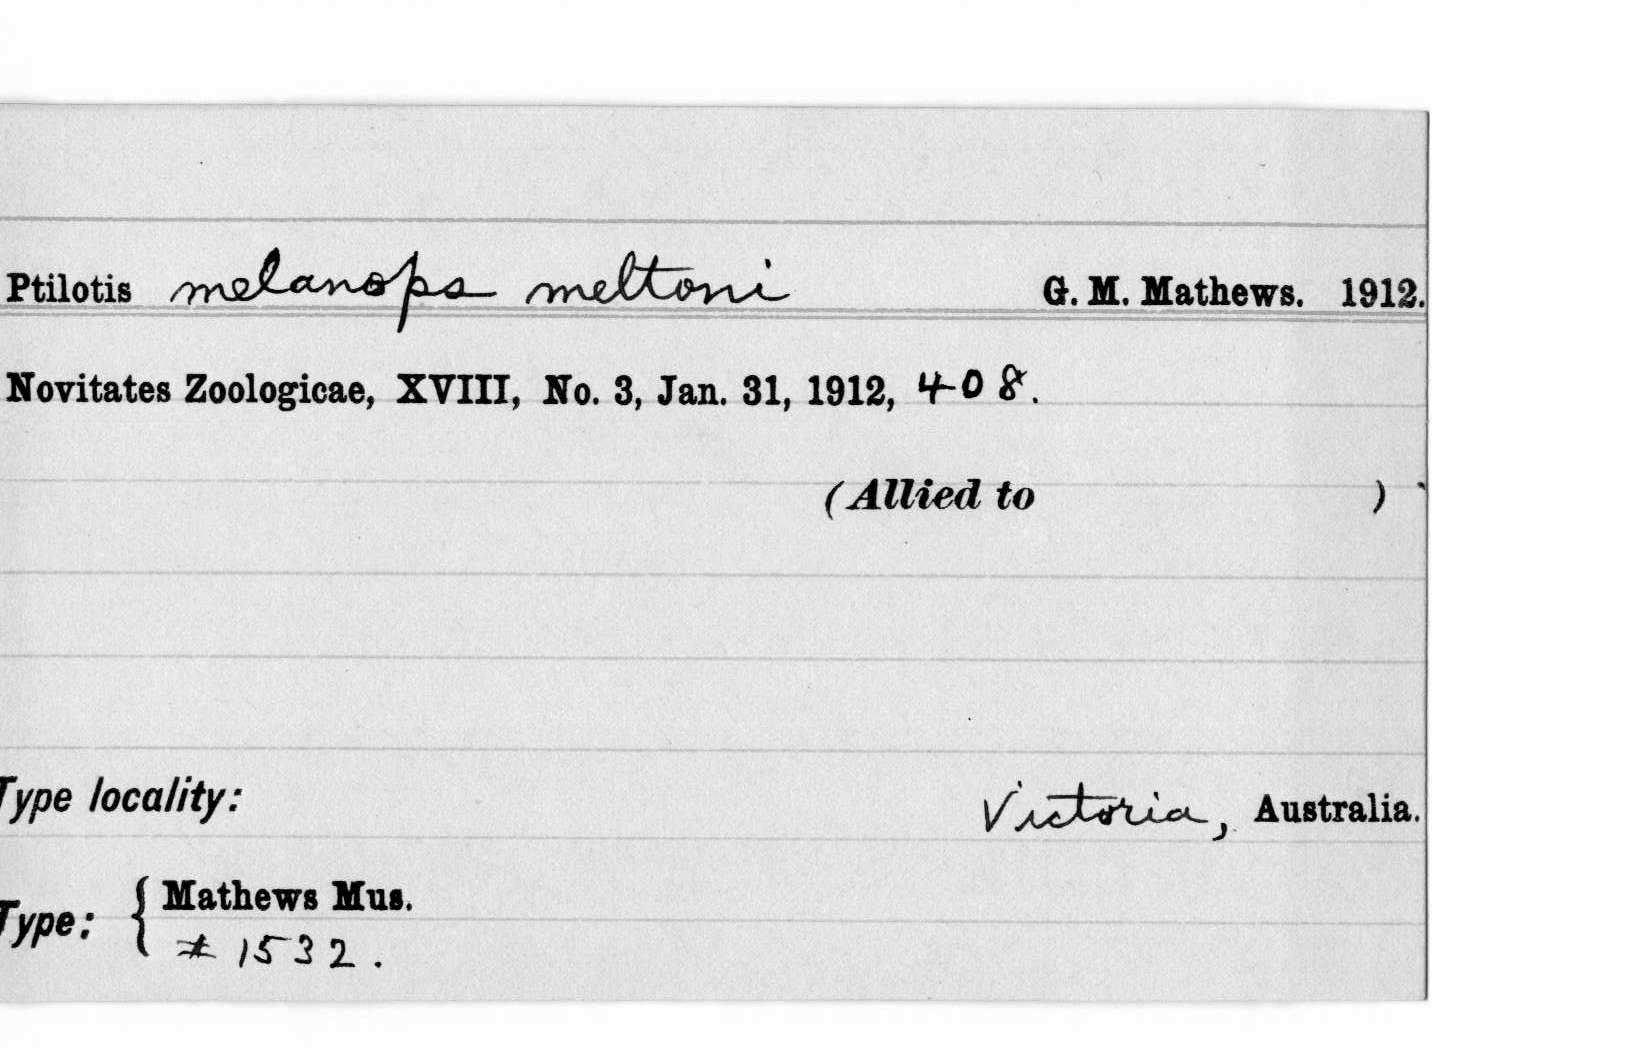 Ptilotis melanops meltoni G. M. Mathews. 1912.
Novitates Zoologicae, XVIII, No. 3, Jan. 31, 1912, 408.
(Allied to )
Type locality: Victoria, Australia.
Type: { Mathews Mus.
# 1532.